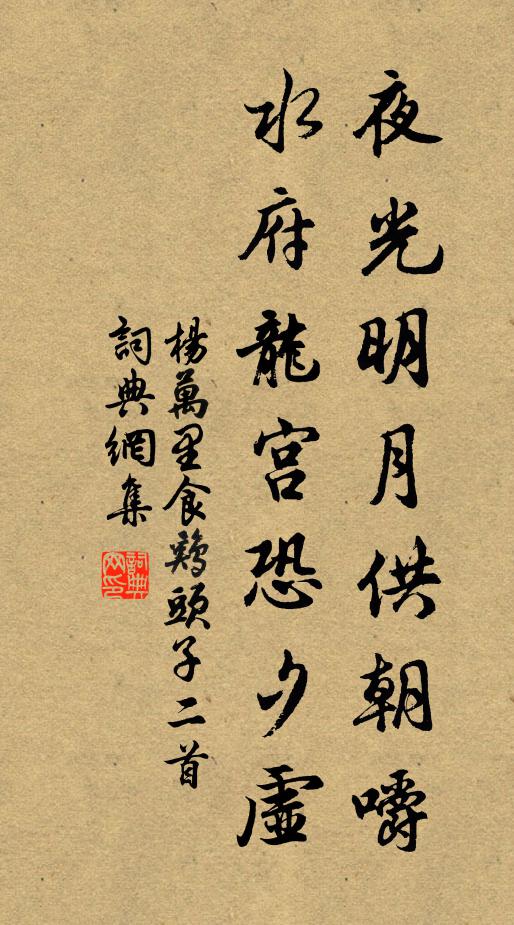 夜光明月供朝嚼
水府龍宮恐夕虛
楊萬里食鷄頭子二首
詞典網集
詞典網印